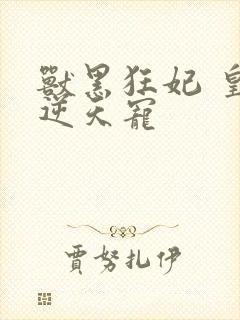 獸黑狂妃 皇
逆天寵
賈努扎伊